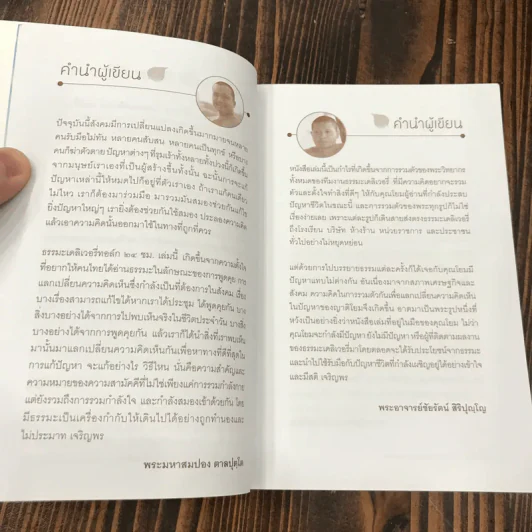 คำนำผู้เขียน
ปัจจุบันนี้สังคมมีการเปลี่ยนแปลงเกิดขึ้นมากมายจนหลาย
คนรับมือไม่ทัน หลายคนสับสน หลายคนเป็นทุกข์ หรือบาง
คนก็ฆ่าตัวตาย ปัญหาต่างๆ ที่รุมเร้าทั้งหลายทั้งปวงนี้ก็เกิดขึ้น
จากมนุษย์เราเองที่เป็นผู้สร้างขึ้นทั้งนั้น ฉะนั้นการจะแก้
ปัญหาเหล่านี้ให้หมดไปก็อยู่ที่ตัวเราเอง ถ้าเราแก้คนเดียว
ไม่ไหว เราก็ต้องมาร่วมมือ มารวมมันสมองช่วยกันแก้ไข
ยิ่งปัญหาใหญ่ๆ เรายิ่งต้องช่วยกันใช้สมอง ประลองความคิด
แล้วเอาความคิดนั้นออกมาใช้ในทางที่ถูกที่ควร
ธรรมะเดลิเวอรี่ทอล์ก ๒๔ ชม. เล่มนี้ เกิดขึ้นจากความตั้งใจ
ที่อยากให้คนไทยได้อ่านธรรมะในลักษณะของการพูดคุย การ
แลกเปลี่ยนความคิดเห็นซึ่งกำลังเป็นที่ต้องการในสังคม เรื่อง
บางเรื่องสามารถแก้ไขได้หากเราได้ประชุม ได้พูดคุยกัน บาง
สิ่งบางอย่างได้จากการไปพบเห็นจริงในชีวิตประจำวัน บางสิ่ง
บางอย่างได้จากการพูดคุยกัน แล้วเราก็ได้นำสิ่งที่เราพบเห็น
มานั้นมาแลกเปลี่ยนความคิดเห็นกันเพื่อหาทางที่ดีที่สุดใน
การแก้ปัญหา จะแก้อย่างไร วิธีไหน นั่นคือความสำคัญและ
ความหมายของความสามัคคีที่ไม่ใช่เพียงแค่การรวมกำลังกาย
แต่ยังรวมถึงการรวมกำลังใจ และกำลังสมองเข้าด้วยกัน โดย
มีธรรมะเป็นเครื่องกำกับให้เดินไปได้อย่างถูกทำนองและ
ไม่ประมาท เจริญพร
พระมหาสมปอง ตาลปุตฺโต
คำนำผู้เขียน
หนังสือเล่มนี้เป็นกำไรที่เกิดขึ้นจากการรวมตัวของพระวิทยากร
ทั้งหมดของทีมงานธรรมะเดลิเวอรี่ ที่มีความคิดอยากจะรวม
ตัวและตั้งใจทำสิ่งที่ดีๆ ให้กับคุณโยมผู้อ่านที่กำลังประสบ
ปัญหาชีวิตในขณะนี้ และการรวมตัวของพระทุกรูปก็ไม่ใช่
เรื่องง่ายเลย เพราะแต่ละรูปก็เดินสายส่งตรงธรรมะเดลิเวอรี่
ถึงโรงเรียน บริษัท ห้างร้าน หน่วยราชการ และประชาชน
ทั่วไปอย่างไม่หยุดหย่อน
แต่ด้วยการไปบรรยายธรรมแต่ละครั้งก็ได้เจอกับคุณโยมมี
ปัญหาแทบไม่ต่างกัน อันเนื่องมาจากสภาพเศรษฐกิจและ
สังคม ความคิดในการรวมตัวกันเพื่อแลกเปลี่ยนความคิดเห็น
ในปัญหาของญาติโยมจึงเกิดขึ้น อาตมาเป็นพระรูปหนึ่งที่
หวังเป็นอย่างยิ่งว่าหนังสือเล่มที่อยู่ในมือของคุณโยม ไม่ว่า
คุณโยมจะกำลังมีปัญหา ยังไม่มีปัญหา หรือผู้ที่ติดตามผลงาน
ของธรรมะเดลิเวอรี่มาโดยตลอดจะได้รับประโยชน์จากธรรมะ
และนำไปใช้รับมือกับปัญหาชีวิตที่กำลังเผชิญอยู่ได้อย่างเข้าใจ
และมีสติ เจริญพร
พระอาจารย์ชัยรัตน์ สิริปุญฺโญ